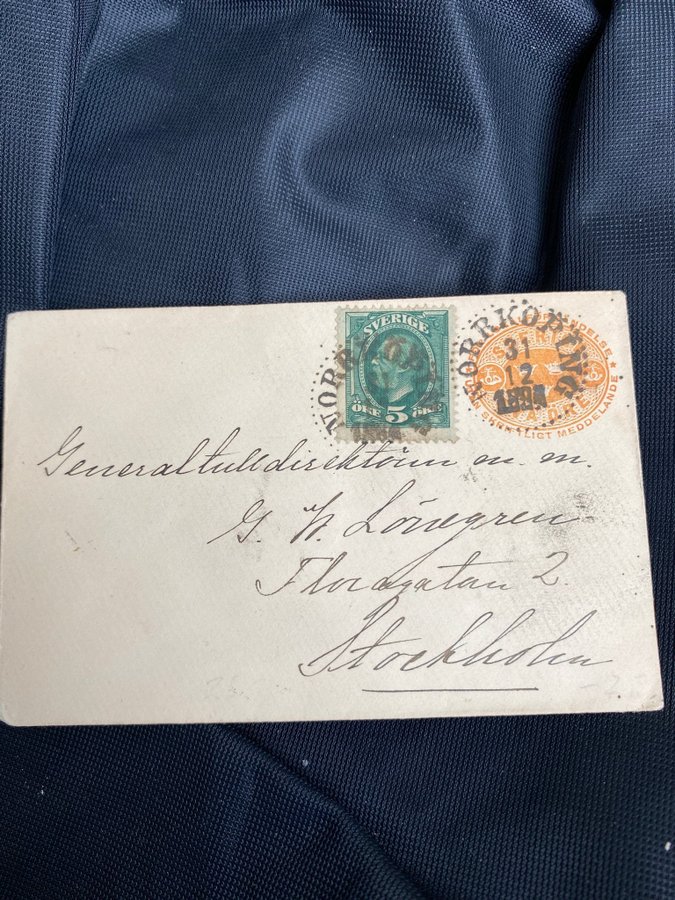 SVERIGE
ÖRE 5 ÖRE
NORRKÖPING
NORRKÖPING
31
12
1894
SKRIFTLIGT MEDDELANDE
Generaltulldirektören m. m.
G. W. Lönegren
Floragatan 2.
Stockholm